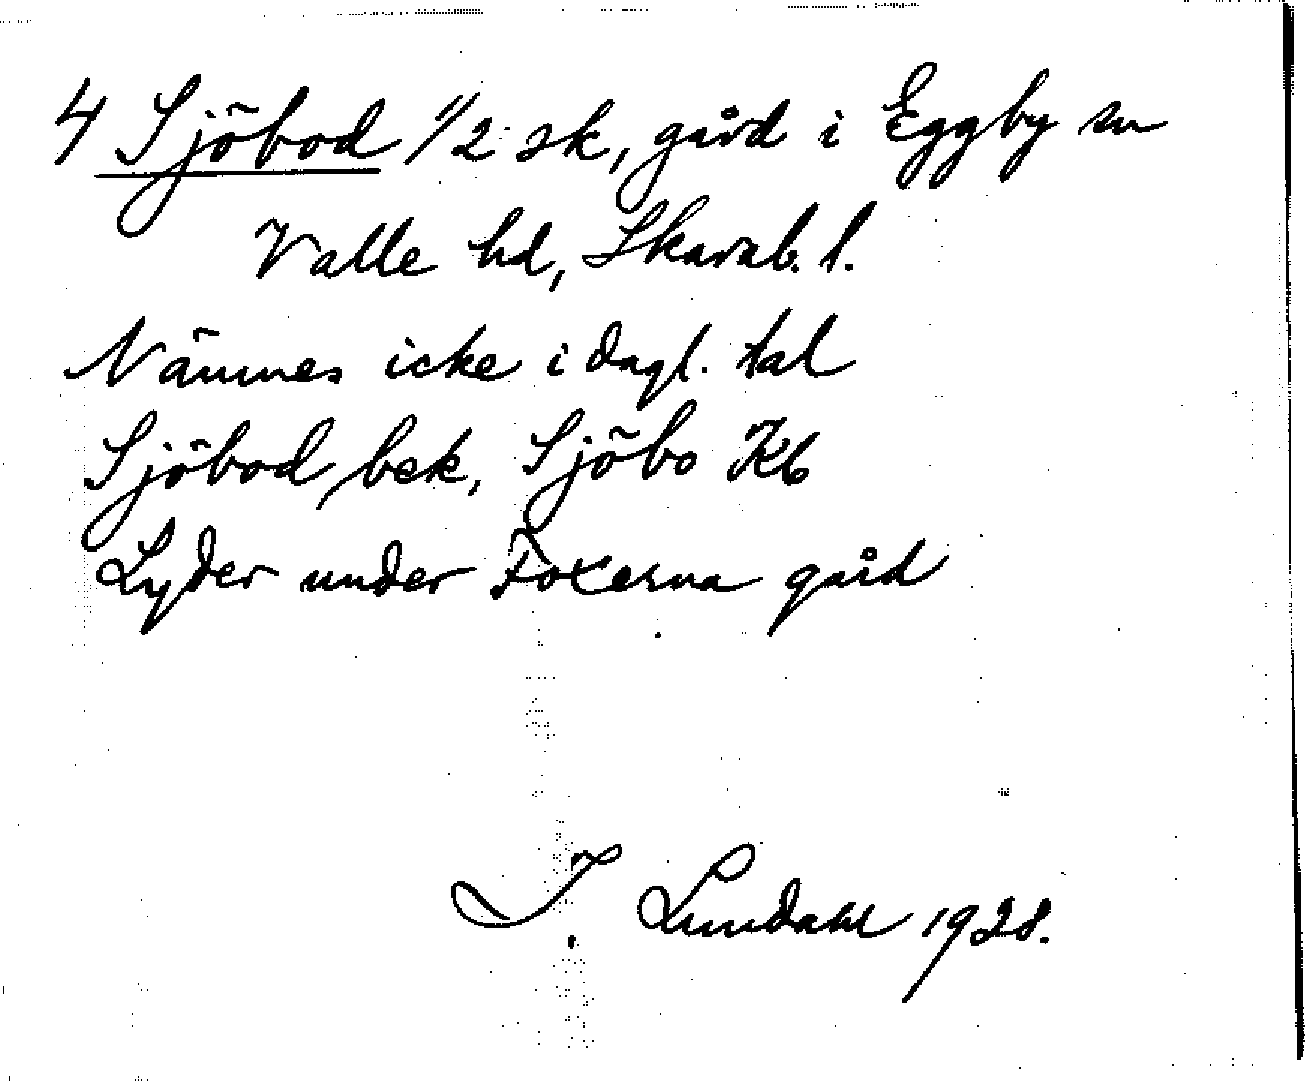 4 Sjöbod 1/2 sk, gård i Eggby sn
Valle hd, Skarab. l.
Nämnes icke i dagl. tal
Sjöbod bek, Sjöbo Kb
Lyder under Foxerna gård
I. Lundahl 1928.